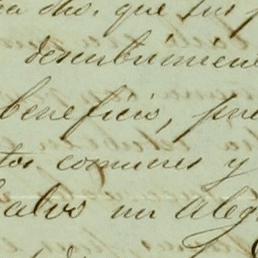 dho, que sus
descubrimien
beneficio, pre
tos comunes y
alvos un aleg